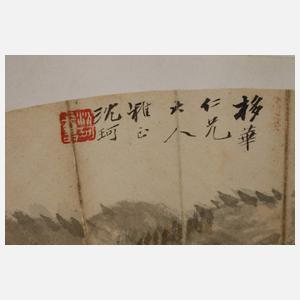 移華
仁兄
大人
雅正
沈珂